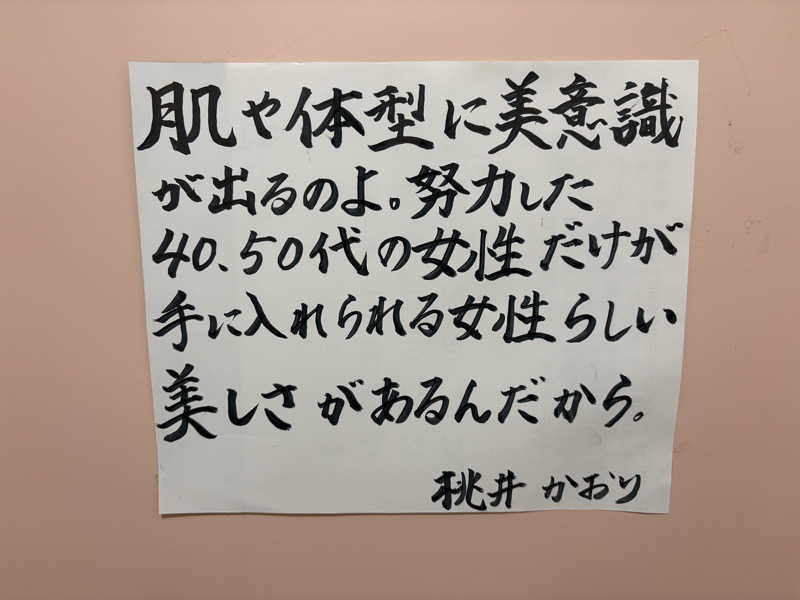 肌や体型に美意識
が出るのよ。努力した
40、50代の女性だけが
手に入れられる女性らしい
美しさがあるんだから。
桃井 かおり